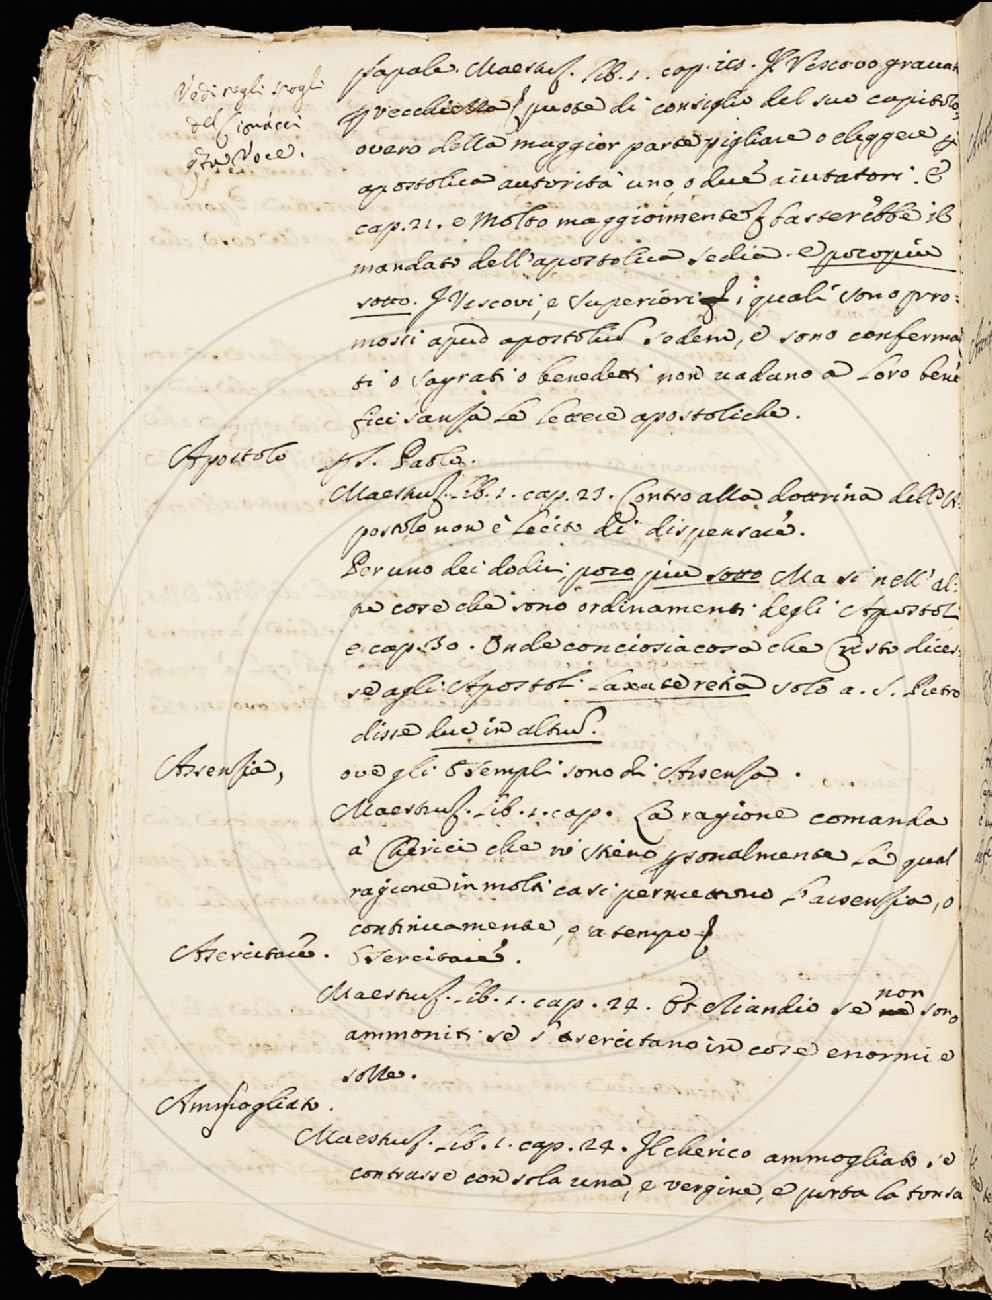 Vedi negli spogli
del Cionacci
q.ta Voce.
papale. Maestruz. lib. 1. cap. 20. Il Vescovo gravato
p vecchiezza puote di consiglio del suo capitolo
overo della maggior parte pigliare o eleggere p
apostolica autorità uno, o due aiutatori. E
cap. 21. e Molto maggiormente basterebbe il
mandato dell'apostolica sedia. e poco più
sotto. I Vescovi, e Superiori i quali sono pro:
mossi apud apostolicā sedem, e sono conferma
ti o sagrati o benedetti non vadano a loro bene
fici sanza le lettere apostoliche.
Apostolo
p S. Paolo.
Maestruz. lib. 1. cap. 23. Contro alla dottrina dell'A:
postolo non è lecito di dispensare.
Per uno dei dodici, poco più sotto Ma si nell'al:
tre cose che sono ordinamenti degli Apostoli
e cap. 30. Onde conciosiacosa che Cristo dices:
se agli Apostoli laxate retia solo a. S. Pietro
disse duc in altū.
Assenzia,
ove gli Esempli sono di Assenza.
Maestruz. lib. 1. cap. La ragione comanda
a' Cherici che vi steno psonalmente la qual
ragione in molti casi permettono l'assenzia, o
continuamente, o a tempo
Asercitare.
Esercitare.
Maestruz. lib. 1. cap. 24. Et eliandio se non sono
ammoniti se s'asercitano in cose enormi e
solle.
Ammogliato.
Maestruz. lib. 1. cap. 24. Il cherico ammogliato se
contrasse con sola una, e vergine, e porta la tonsu